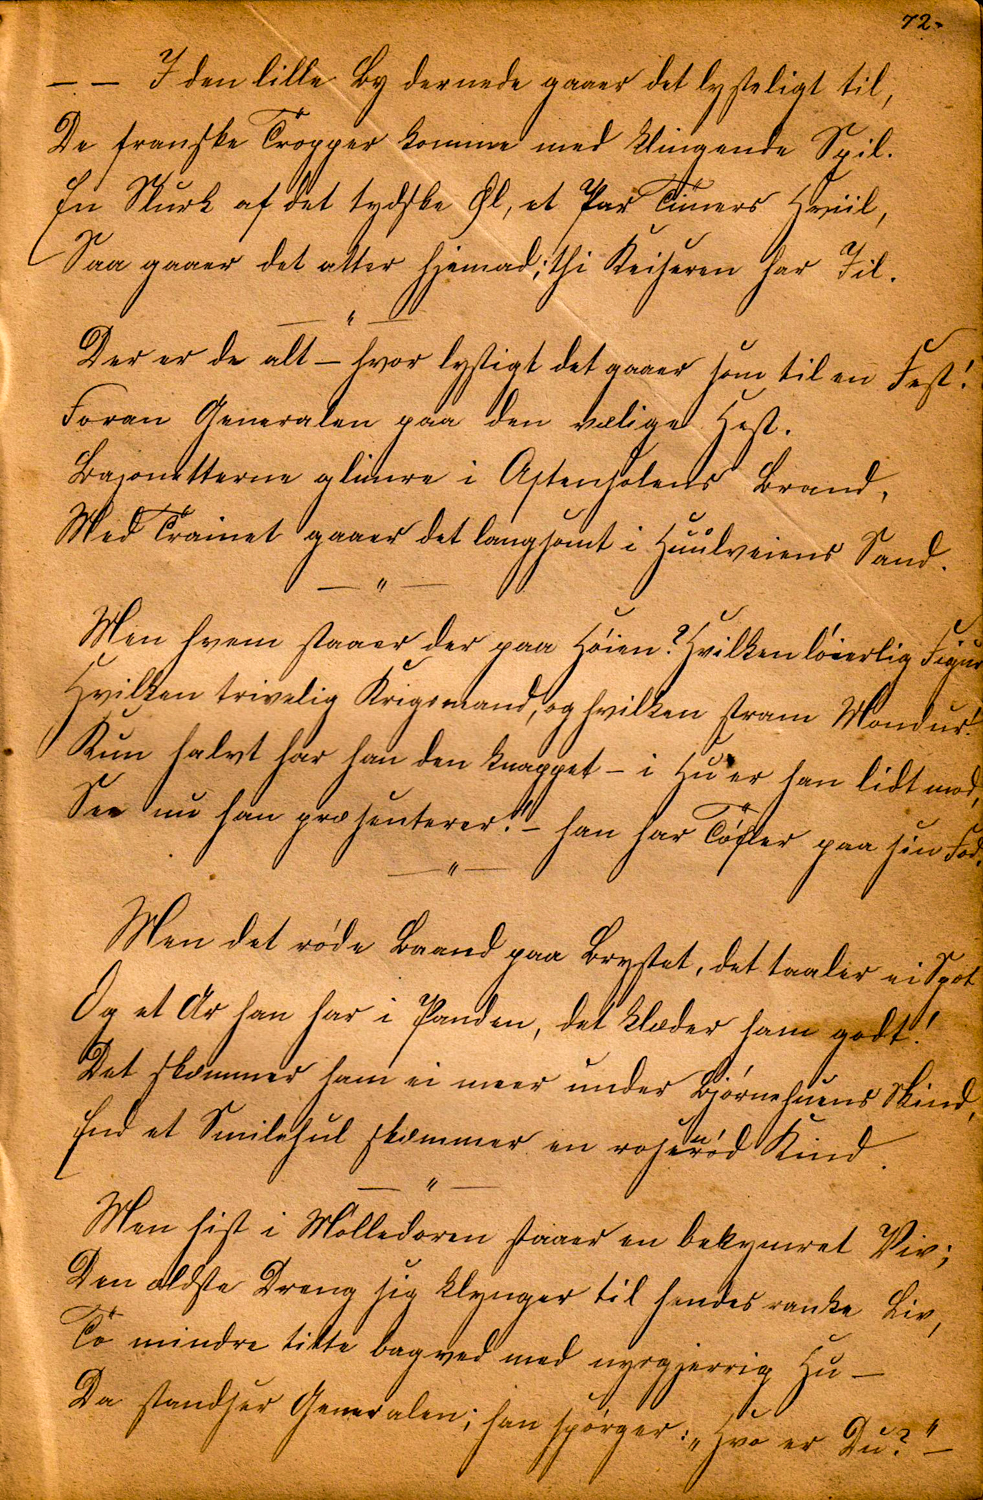 72.
— — I den lille By dernede gaaer det lysteligt til,
De franske Tropper komme med klingende Spil.
En Slurk af det tydske Øl, et Par Timers Hviil,
Saa gaaer det atter hjemad; thi Keiseren har Iil.
— " —
Der er de alt — hvor lystigt det gaaer som til en Fest!
Foran Generalen paa den vælige Hest.
Bajonetterne glimre i Aftensolens Brand,
Med Trainet gaaer det langsomt i Huulveiens Sand.
— " —
Men hvem staaer der paa Høien? Hvilken løierlig Figur
Hvilken trivelig Krigsmand, og hvilken stram Mondur!
Kun halvt har han den knappet — i Hu er han lidt mod,
See nu han præsenterer! — han har Tøfler paa sin Fod.
— " —
Men det røde Baand paa Brystet, det taaler ei Spot
Og et Ar han har i Panden, det klæder ham godt!
Det skæmmer ham ei meer under Bjørnehuens Skind,
End et Smilehul skæmmer en rosenrød Kind.
— " —
Men hist i Mølledøren staaer en bekymret Viv;
Den ældste Dreng sig klynger til hendes ranke Liv,
To mindre titte bagved med nysgjerrig Hu —
Da standser Generalen; han spørger: „Hvo er Du?" —